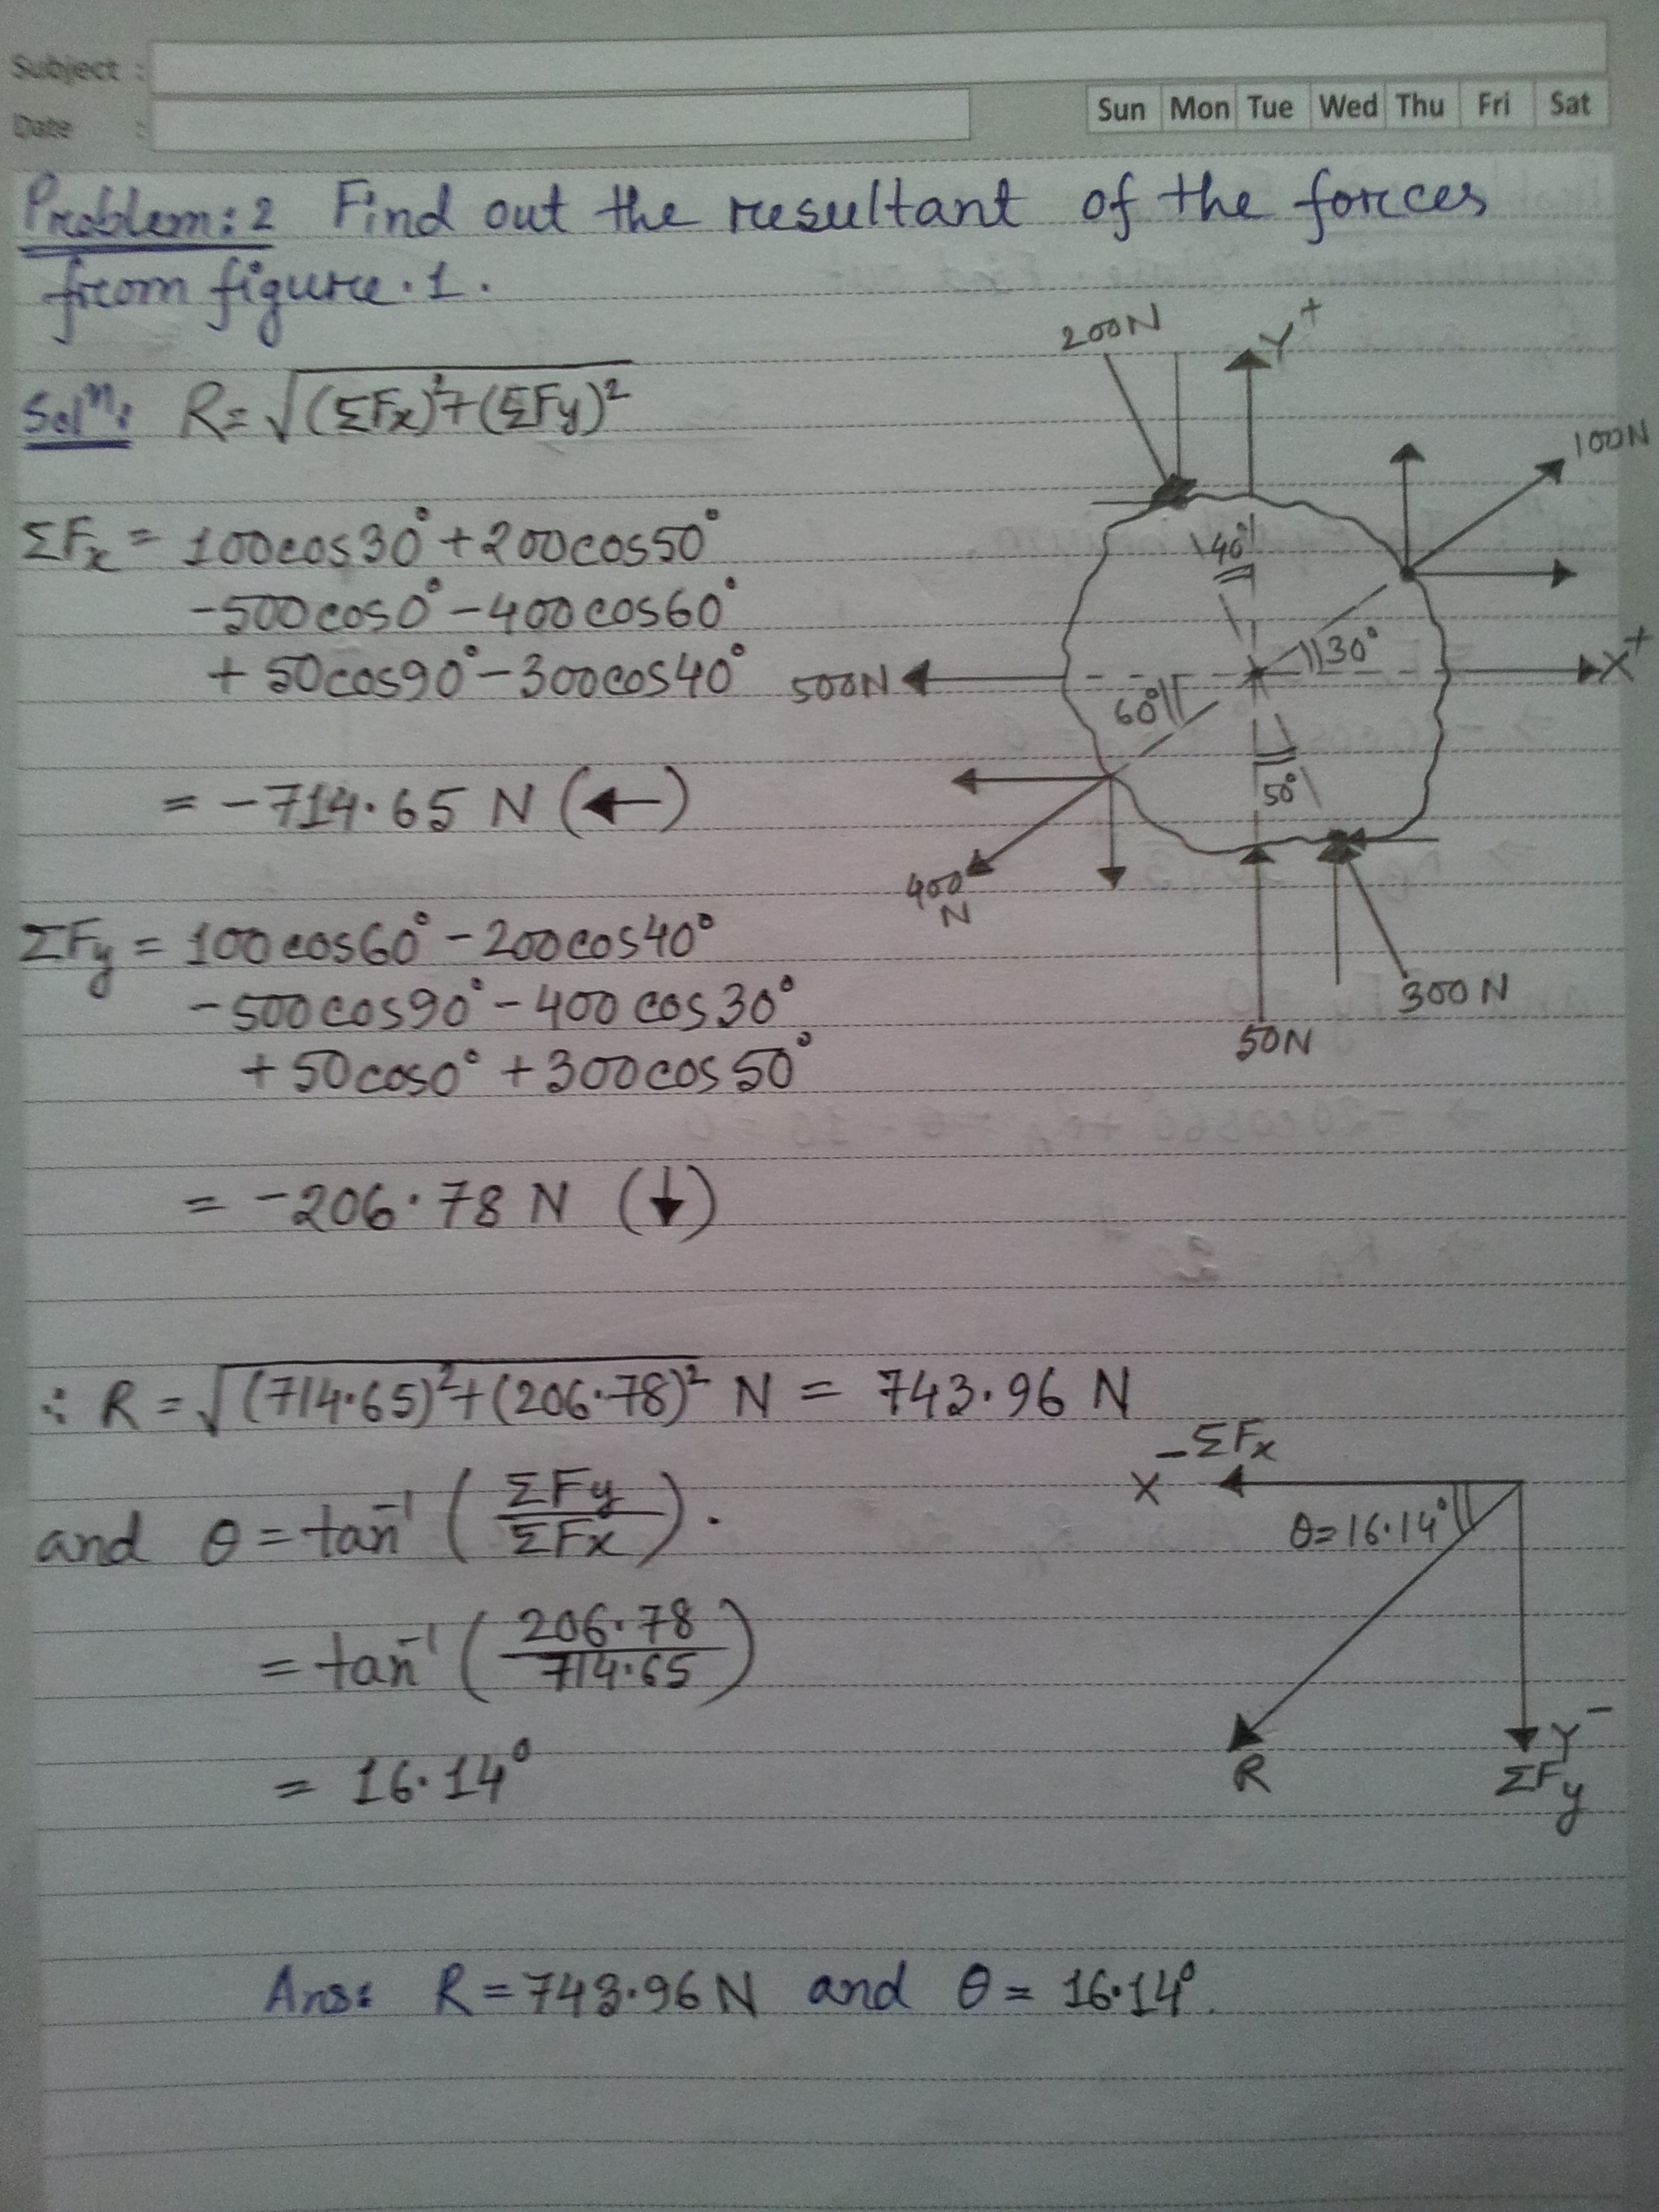 Subject :
Date :
Sun Mon Tue Wed Thu Fri Sat
Problem:2 Find out the resultant of the forces
from figure.1.
Solⁿ: R=√(ΣFx)²+(ΣFy)²
ΣFx = 100cos30°+200cos50°
-500cos0°-400cos60°
+50cos90°-300cos40°
= -714.65 N (←)
ΣFy = 100cos60°-200cos40°
-500cos90°-400cos30°
+50cos0°+300cos50°
= -206.78 N (↓)
200N
Y+
100N
40°
30°
X+
500N
60°
50°
400
N
300N
50N
∴ R=√(714.65)²+(206.78)² N = 743.96 N
and θ=tan⁻¹(ΣFy/ΣFx).
=tan⁻¹(206.78/714.65)
= 16.14°
-ΣFx
X
θ=16.14°
R
Y-
ΣFy
Ans: R=743.96N and θ= 16.14°.